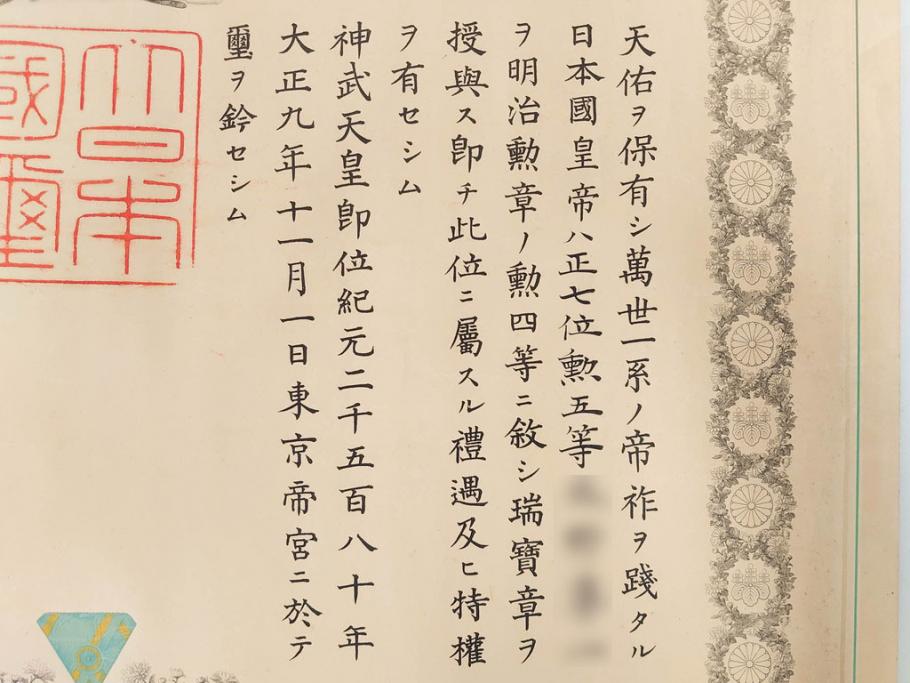 天佑ヲ保有シ萬世一系ノ帝祚ヲ踐タル
日本國皇帝ハ正七位勲五等
ヲ明治勲章ノ勲四等ニ敘シ瑞寶章ヲ
授與ス卽チ此位ニ屬スル禮遇及ヒ特權
ヲ有セシム
神武天皇卽位紀元二千五百八十年
大正九年十一月一日東京帝宮ニ於テ
璽ヲ鈐セシム
大日本
國璽